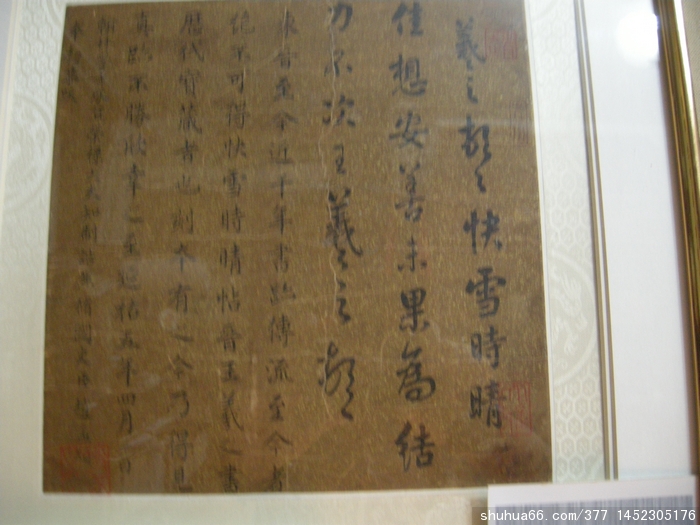 羲之頓首快雪時晴
佳想安善未果為結
力不次王羲之頓首
東晉至今近千年書跡傳流至今者
絕不可得快雪時晴帖晉王羲之書
歷代寶藏者也刻本有之今乃得見
真跡不勝欣幸之至延祐五年四月日
翰林學士承旨榮祿大夫知制誥兼脩國史臣趙
奉
shuhua66.com/377 1452305176